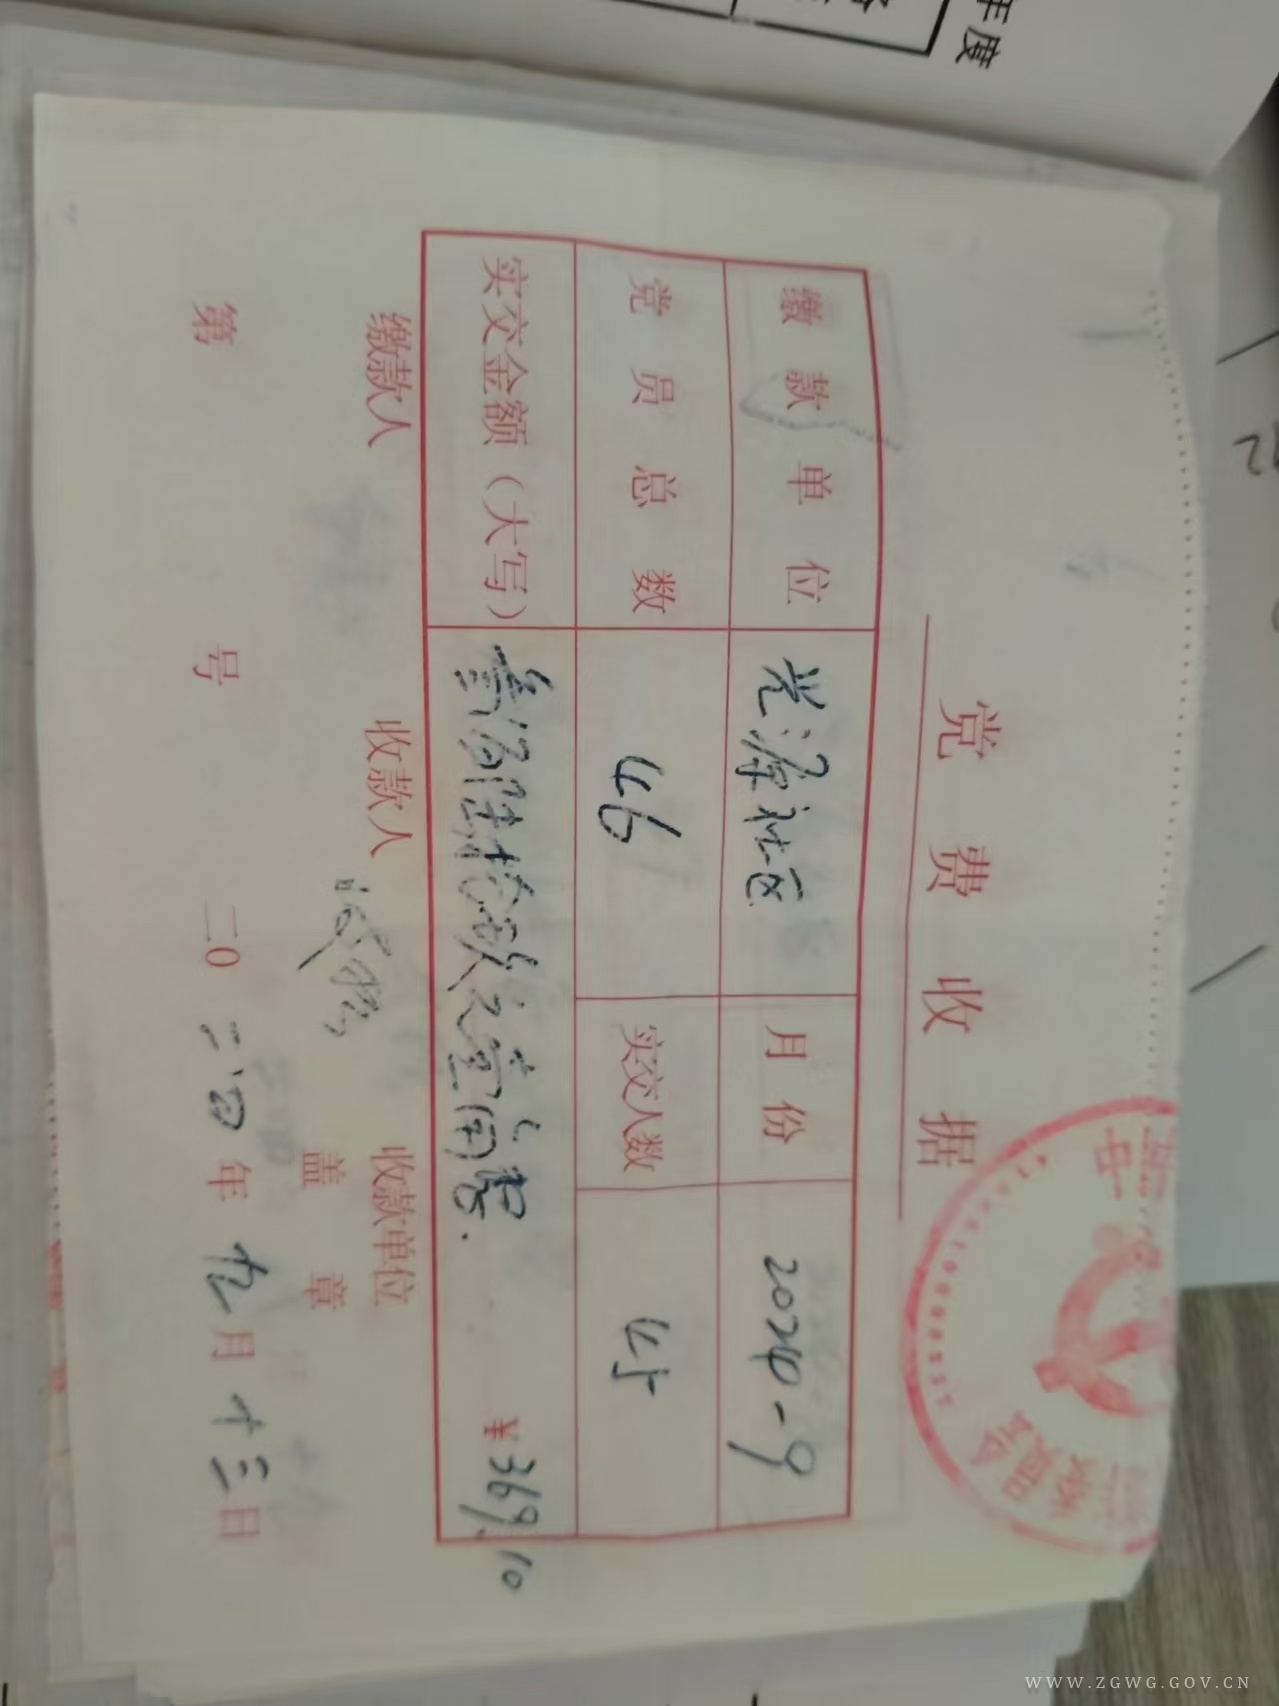 年度
党费收据
缴款单位 光源社区 月份 2024-9
党员总数 46 实交人数 45
实交金额（大写） 叁佰陆拾玖元壹角整. ¥369.10
缴款人 收款人 收款单位
盖章
第 号 二0二四年九月十三日
WWW.ZGWG.GOV.CN